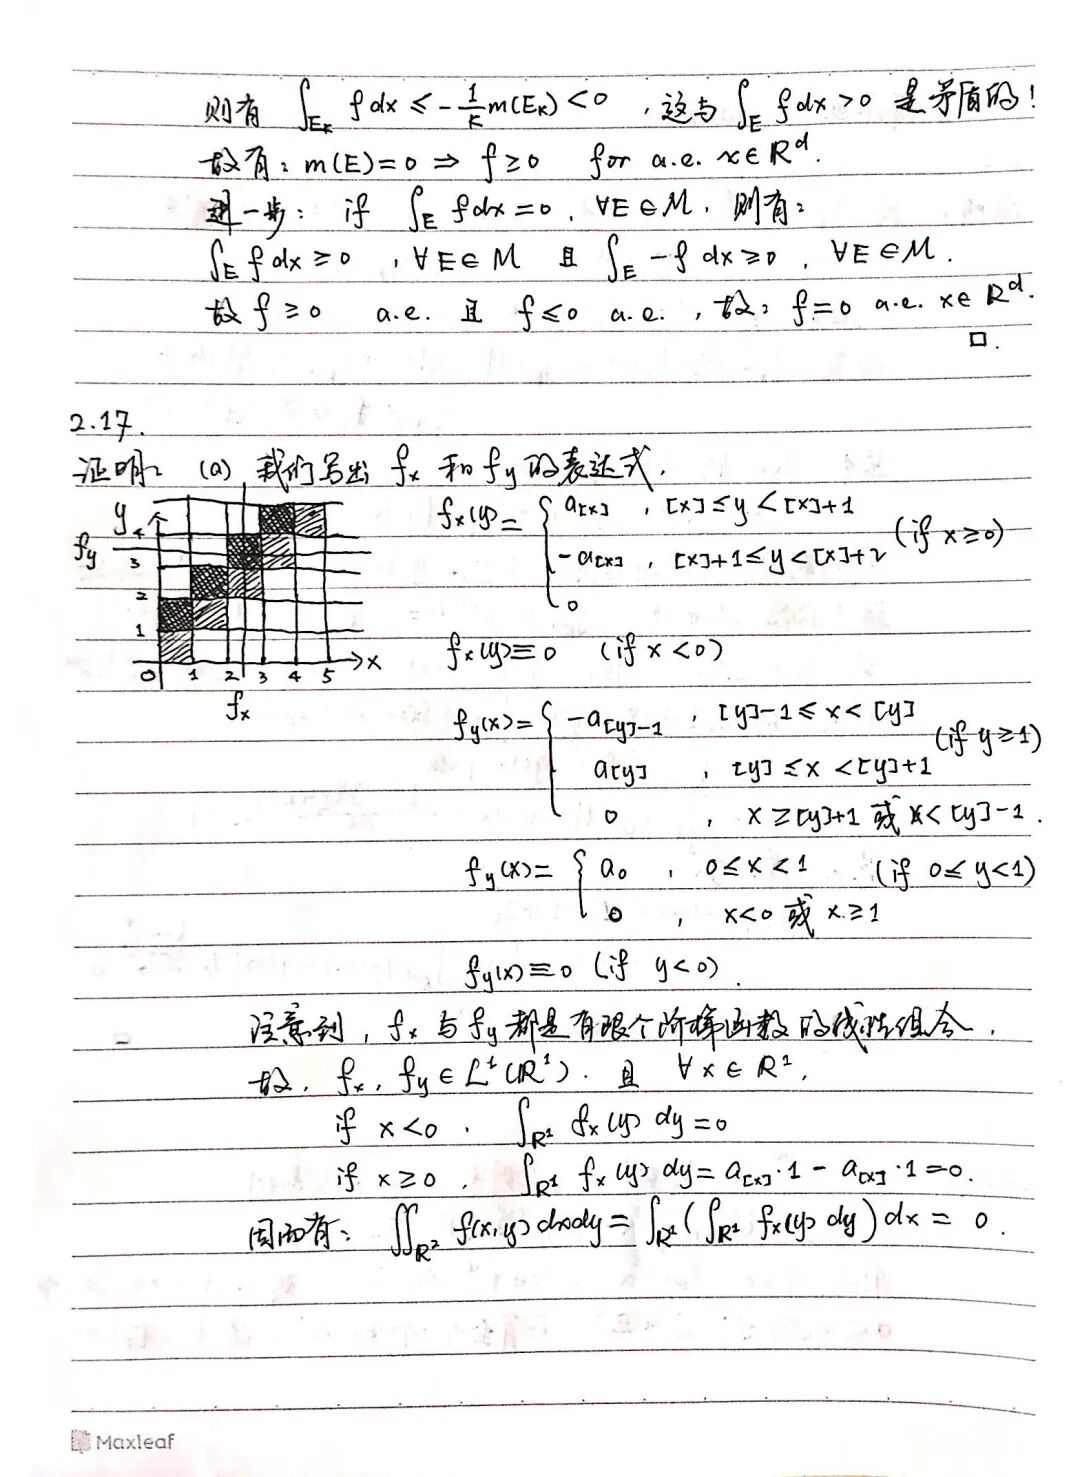 则有 ∫_{E_k} f dx ≤ -1/k m(E_k) < 0 , 这与 ∫_E f dx > 0 是矛盾的!
故有: m(E)=0 ⇒ f≥0 for a.e. x∈R^d.
进一步: if ∫_E f dx = 0, ∀E∈M, 则有:
∫_E f dx ≥ 0 , ∀E∈M 且 ∫_E -f dx ≥ 0 , ∀E∈M.
故 f≥0 a.e. 且 f≤0 a.e. , 故: f=0 a.e. x∈R^d.
□.
2.17.
证明: (a) 我们写出 f_x 和 f_y 的表达式.
y
4
3
2
1
0 1 2 3 4 5 x
f_y
f_x
f_x(y) = { a_[x] , [x]≤y<[x]+1
-a_[x] , [x]+1≤y<[x]+2 (if x≥0)
0
f_x(y)≡0 (if x<0)
f_y(x) = { -a_{[y]-1} , [y]-1≤x<[y]
a_[y] , [y]≤x<[y]+1 (if y≥1)
0 , x≥[y]+1 或 x<[y]-1.
f_y(x) = { a_0 , 0≤x<1 (if 0≤y<1)
0 , x<0 或 x≥1
f_y(x)≡0 (if y<0)
注意到, f_x 与 f_y 都是有限个阶梯函数的线性组合.
故, f_x, f_y∈L^1(R^1). 且 ∀x∈R^1,
if x<0 , ∫_{R^1} f_x(y) dy = 0
if x≥0 , ∫_{R^1} f_x(y) dy = a_[x]·1 - a_[x]·1 = 0.
因而有: ∬_{R^2} f(x,y) dxdy = ∫_{R^1}(∫_{R^1} f_x(y) dy) dx = 0.
Maxleaf